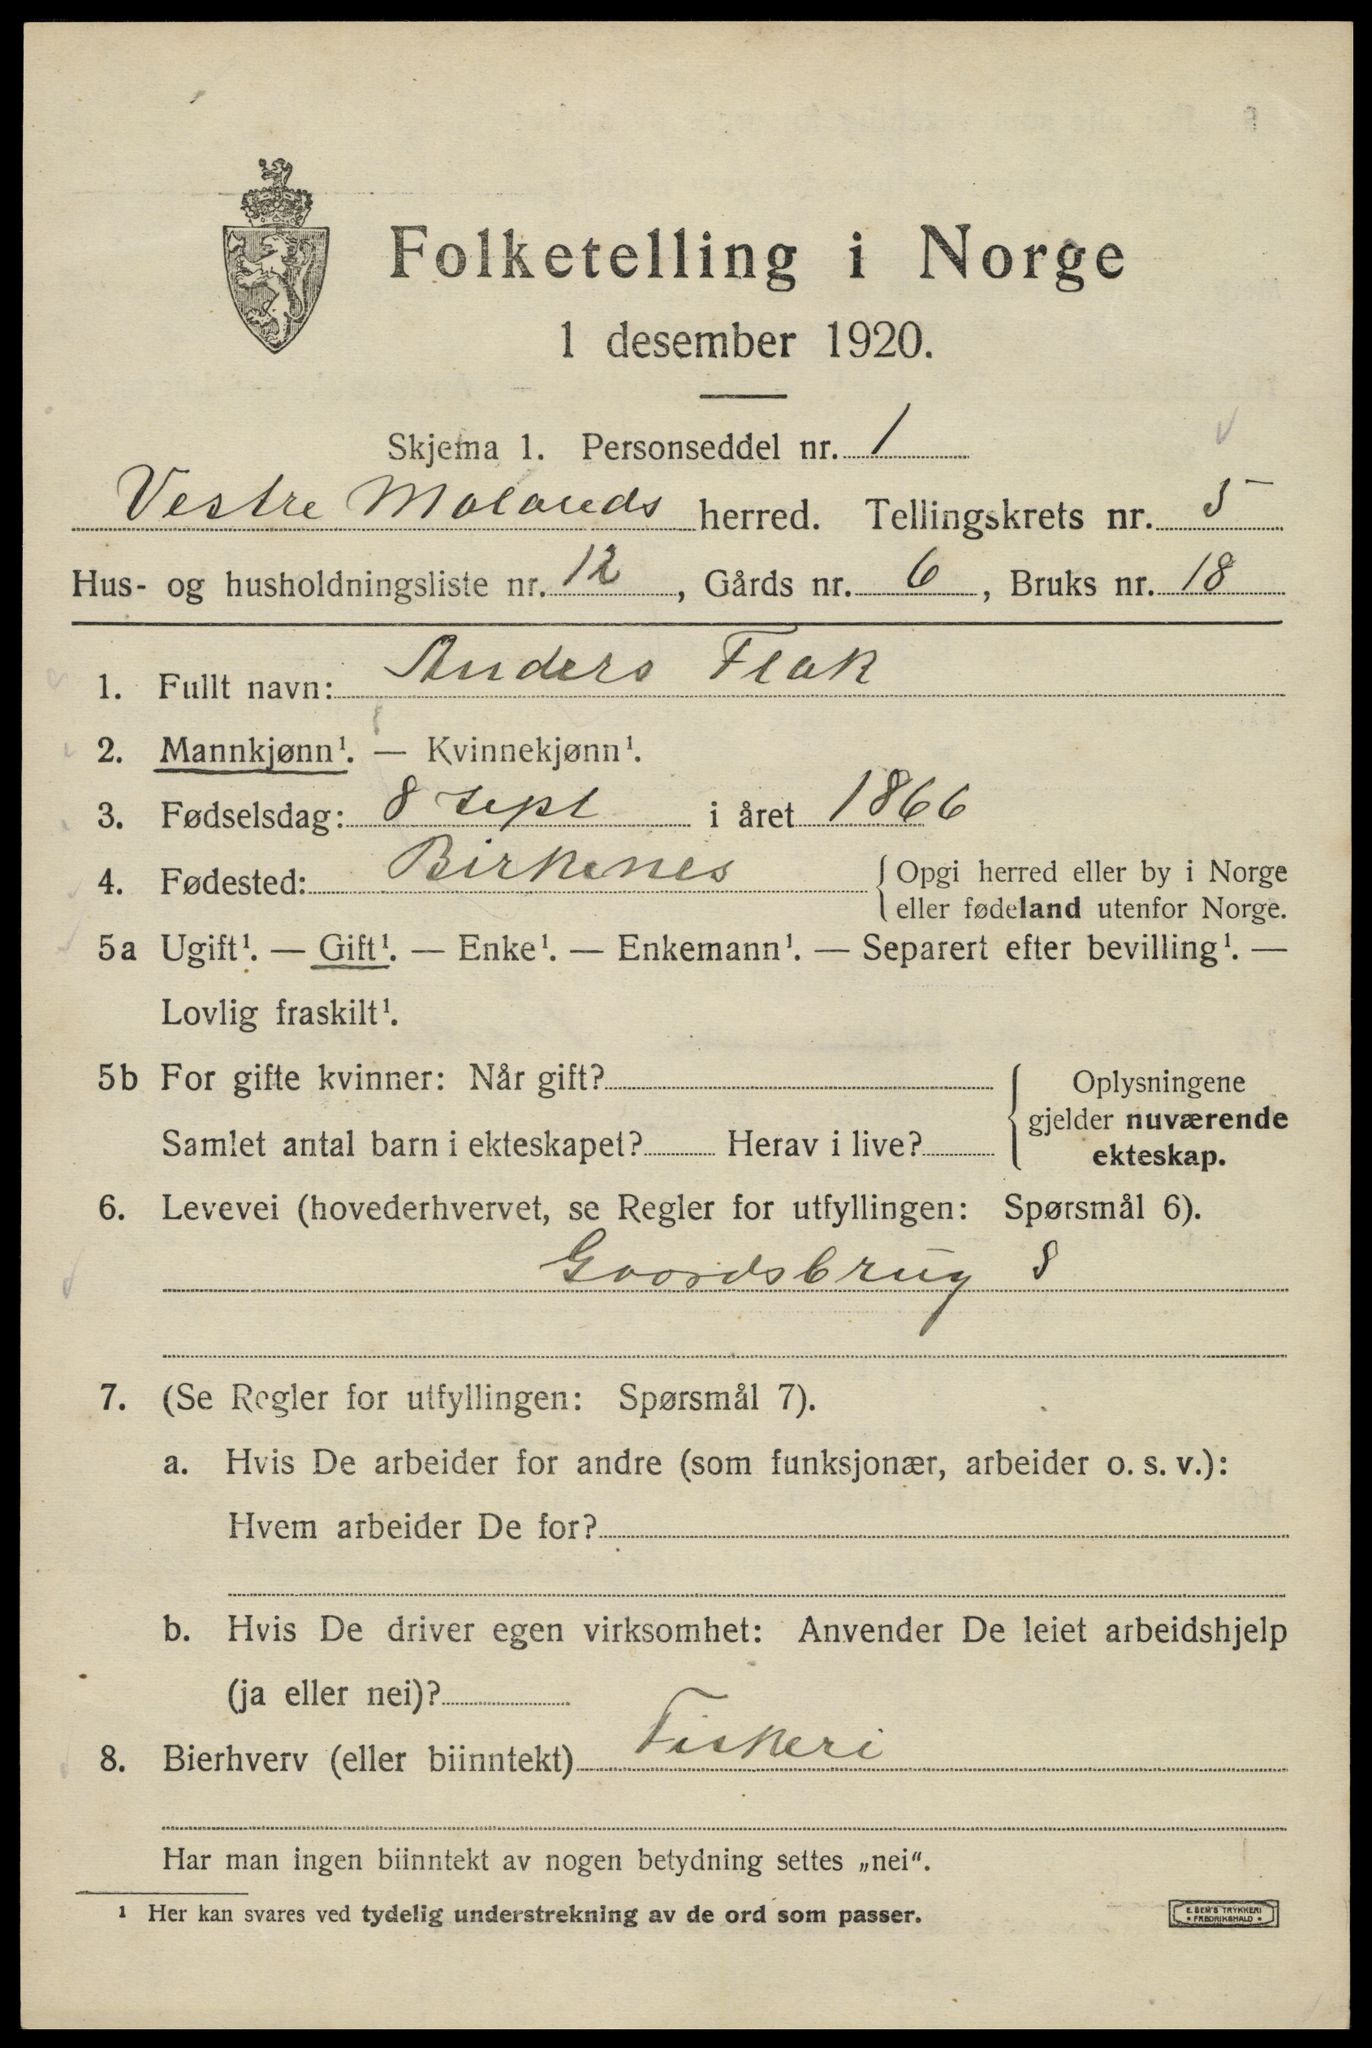 Folketelling i Norge
1 desember 1920.
Skjema 1. Personseddel nr. 1
Vestre Molands herred. Tellingskrets nr. 5
Hus- og husholdningsliste nr. 12, Gårds nr. 6, Bruks nr. 18
1. Fullt navn: Anders Flak
2. Mannkjønn¹. — Kvinnekjønn¹.
3. Fødselsdag: 8 sept i året 1866
4. Fødested: Birkenes { Opgi herred eller by i Norge
eller fødeland utenfor Norge.
5a Ugift¹. — Gift¹. — Enke¹. — Enkemann¹. — Separert efter bevilling¹. —
Lovlig fraskilt¹.
5b For gifte kvinner: Når gift? { Oplysningene
gjelder nuværende
Samlet antal barn i ekteskapet? Herav i live?
ekteskap.
6. Levevei (hovederhvervet, se Regler for utfyllingen: Spørsmål 6).
Goordsbrug S
7. (Se Regler for utfyllingen: Spørsmål 7).
a. Hvis De arbeider for andre (som funksjonær, arbeider o. s. v.):
Hvem arbeider De for?
b. Hvis De driver egen virksomhet: Anvender De leiet arbeidshjelp
(ja eller nei)?
8. Bierhverv (eller biinntekt) Fiskeri
Har man ingen biinntekt av nogen betydning settes „nei“.
1 Her kan svares ved tydelig understrekning av de ord som passer.
E. SEM'S TRYKKERI
• FREDRIKSHALD •